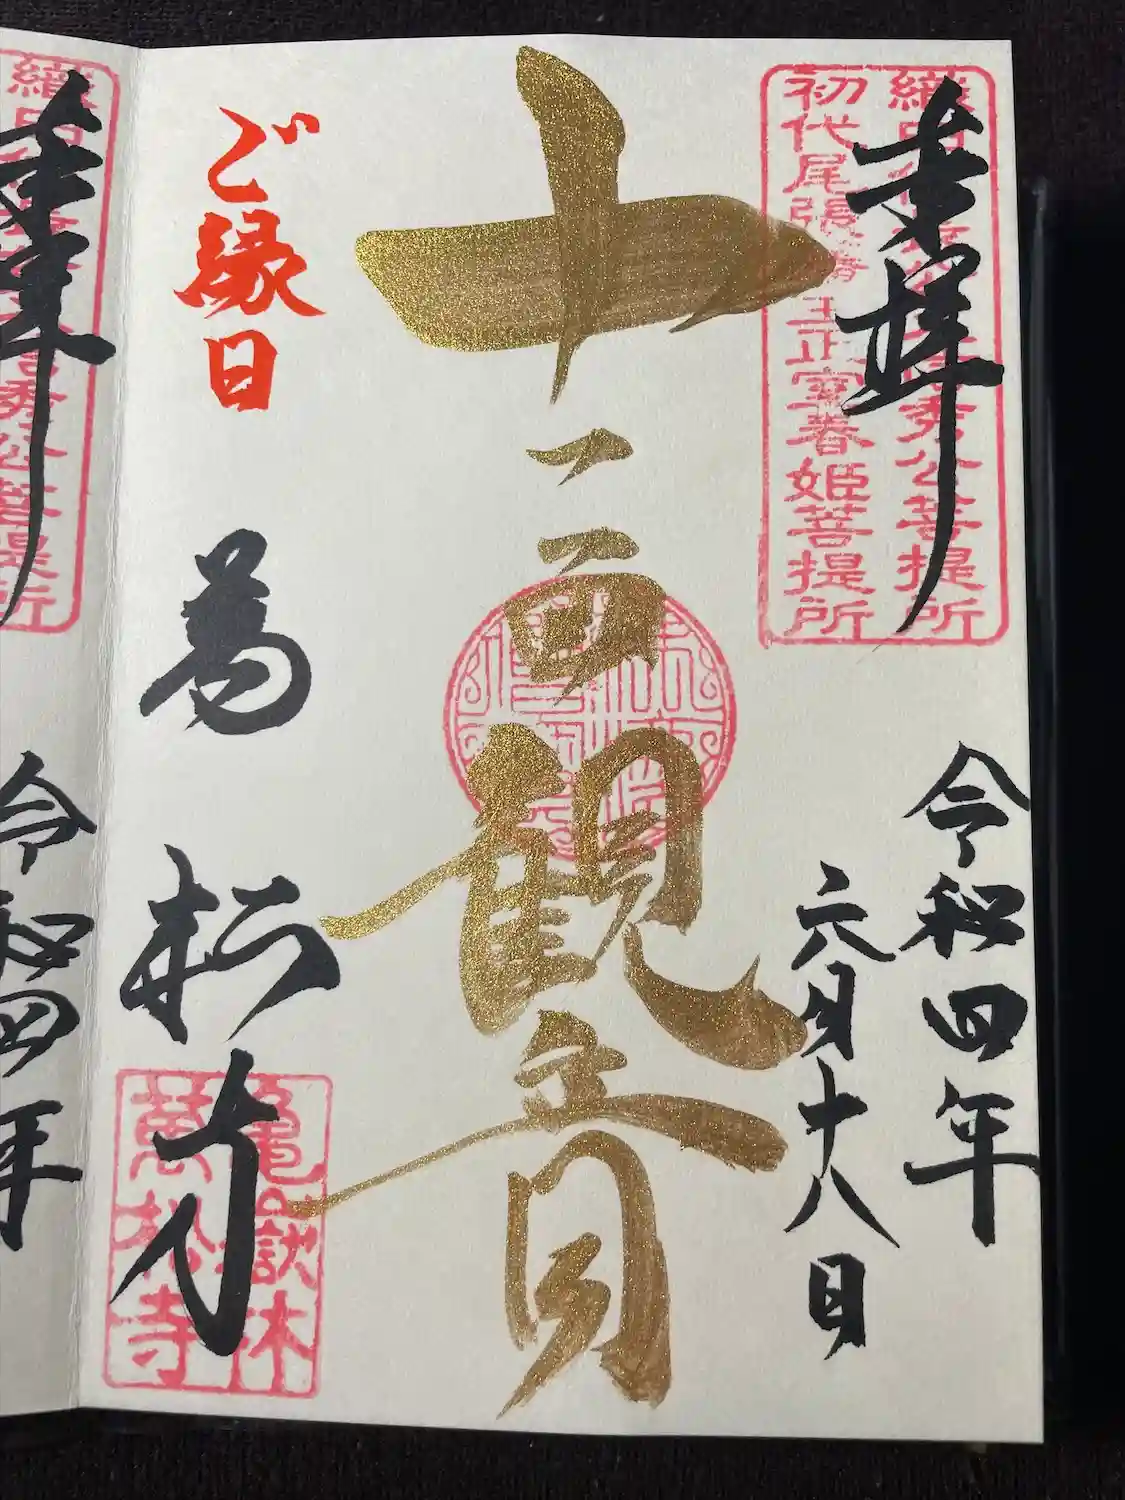 奉拝
織田
秀公菩提所
初代尾張藩主正室春姫菩提所
令和四年
六月十八日
十一面観音
ご縁日
萬松寺
亀嶽林
萬松寺
奉拝
織田
秀公菩提所
令和四年